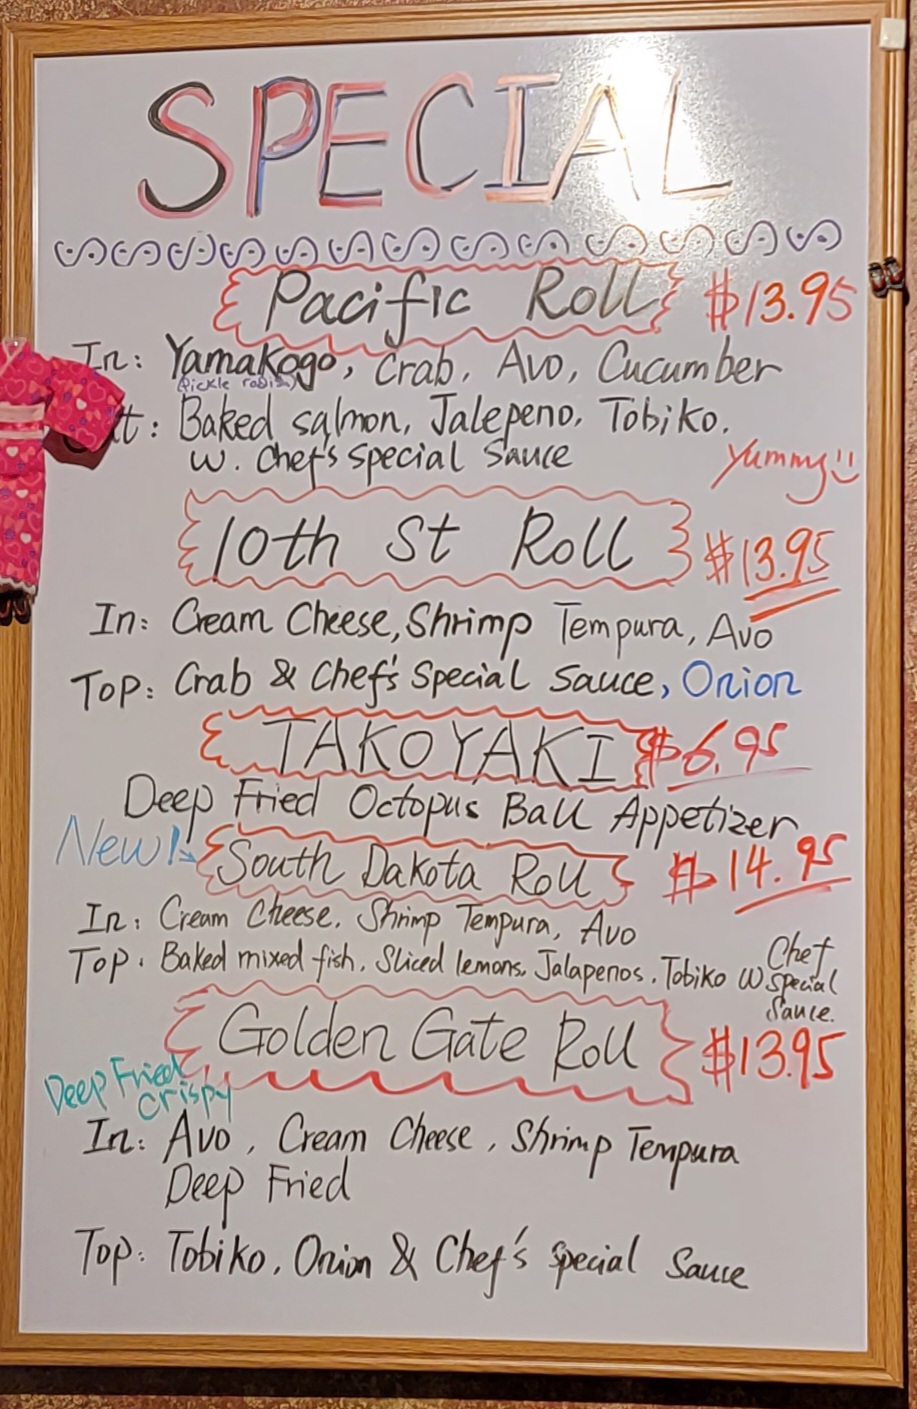 SPECIAL
Pacific Roll $13.95
In: Yamakogo, Crab, Avo, Cucumber
(Pickle radish)
Baked salmon, Jalepeno, Tobiko.
w. Chef's special Sauce
Yummy
10th St Roll $13.95
In: Cream Cheese, Shrimp Tempura, Avo
Top: Crab & Chef's Special Sauce, Onion
TAKOYAKI $6.95
Deep Fried Octopus Ball Appetizer
New!
South Dakota Roll $14.95
In: Cream Cheese, Shrimp Tempura, Avo
Top: Baked mixed fish, Sliced lemons, Jalapenos, Tobiko W Chef
Special
Sauce.
Golden Gate Roll $13.95
Deep Fried
Crispy
In: Avo, Cream Cheese, Shrimp Tempura
Deep Fried
Top: Tobiko, Onion & Chef's special Sauce